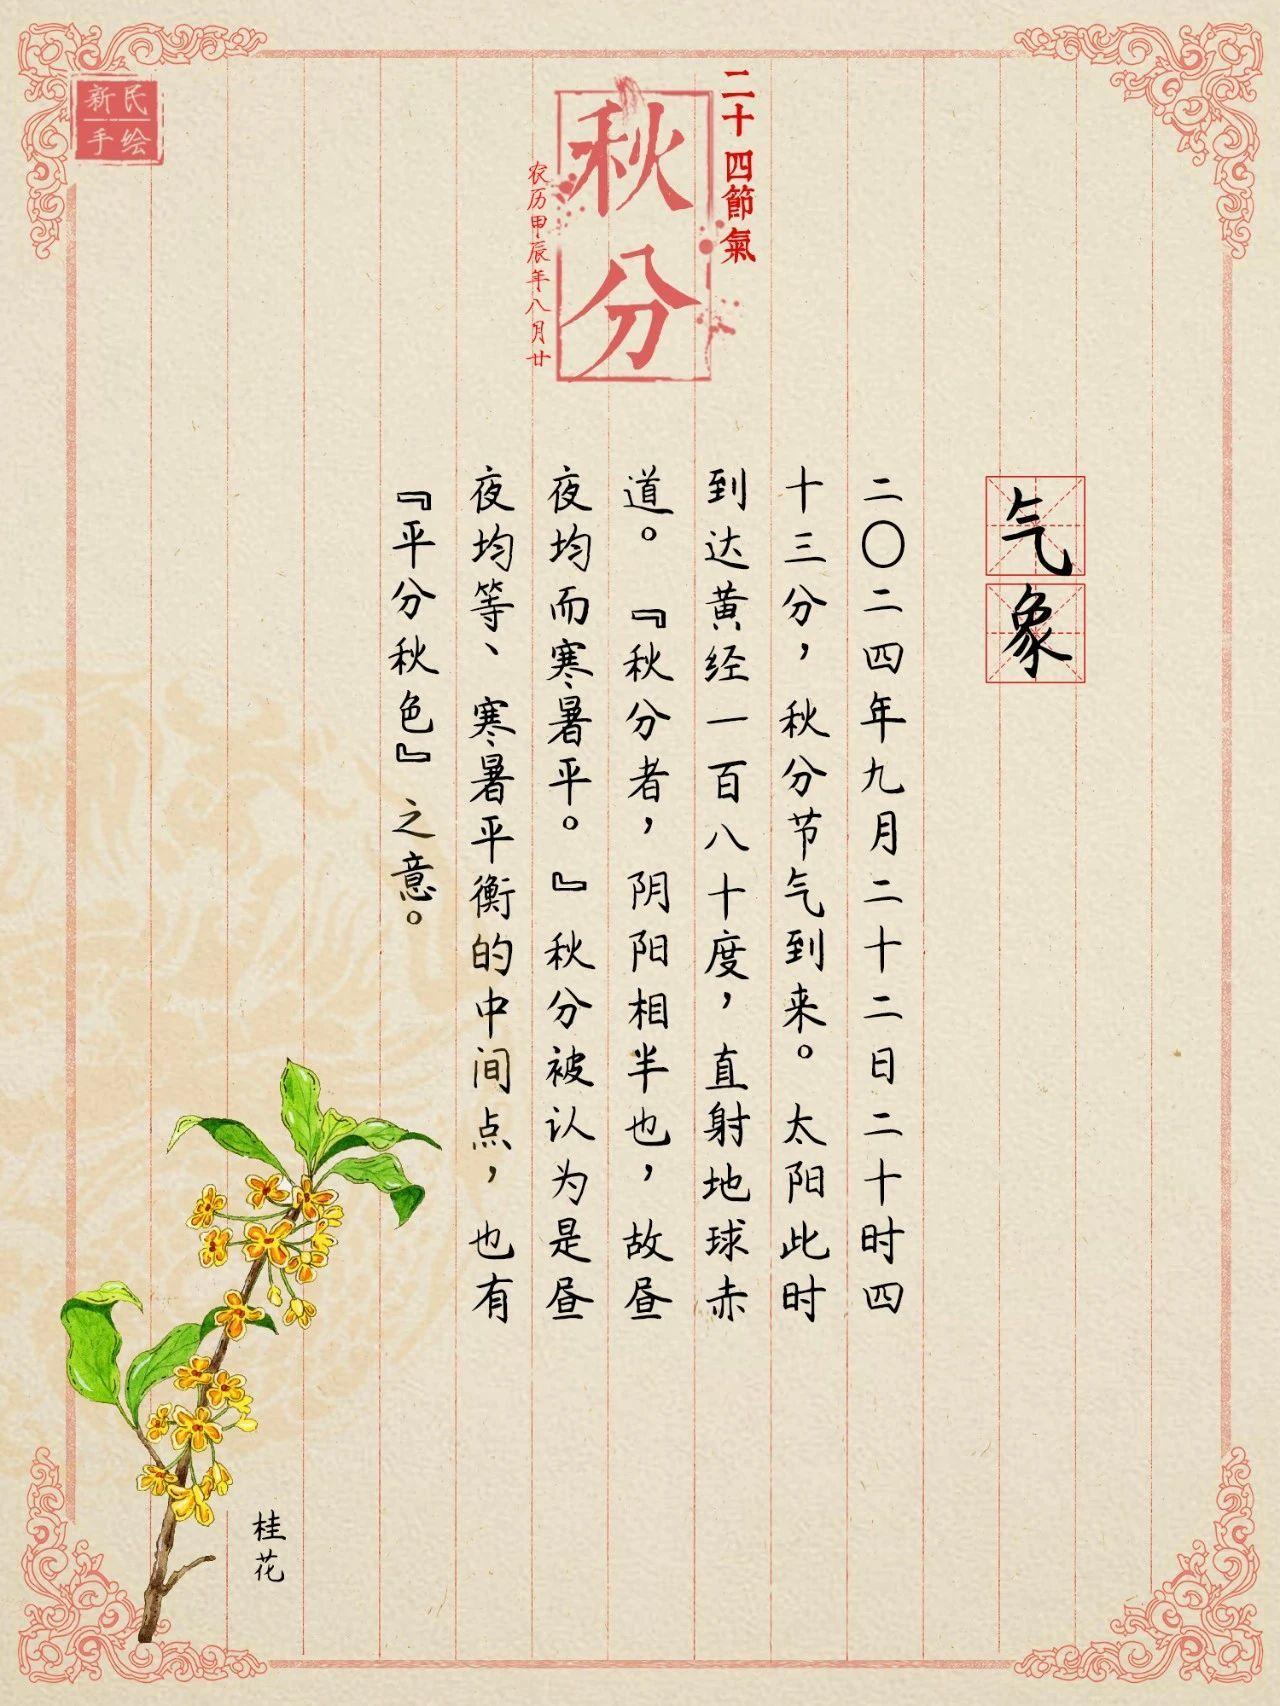 新民
手绘
二十四節氣
秋分
农历甲辰年八月廿
气象
二〇二四年九月二十二日二十时四
十三分，秋分节气到来。太阳此时
到达黄经一百八十度，直射地球赤
道。『秋分者，阴阳相半也，故昼
夜均而寒暑平。』秋分被认为是昼
夜均等、寒暑平衡的中间点，也有
『平分秋色』之意。
桂花